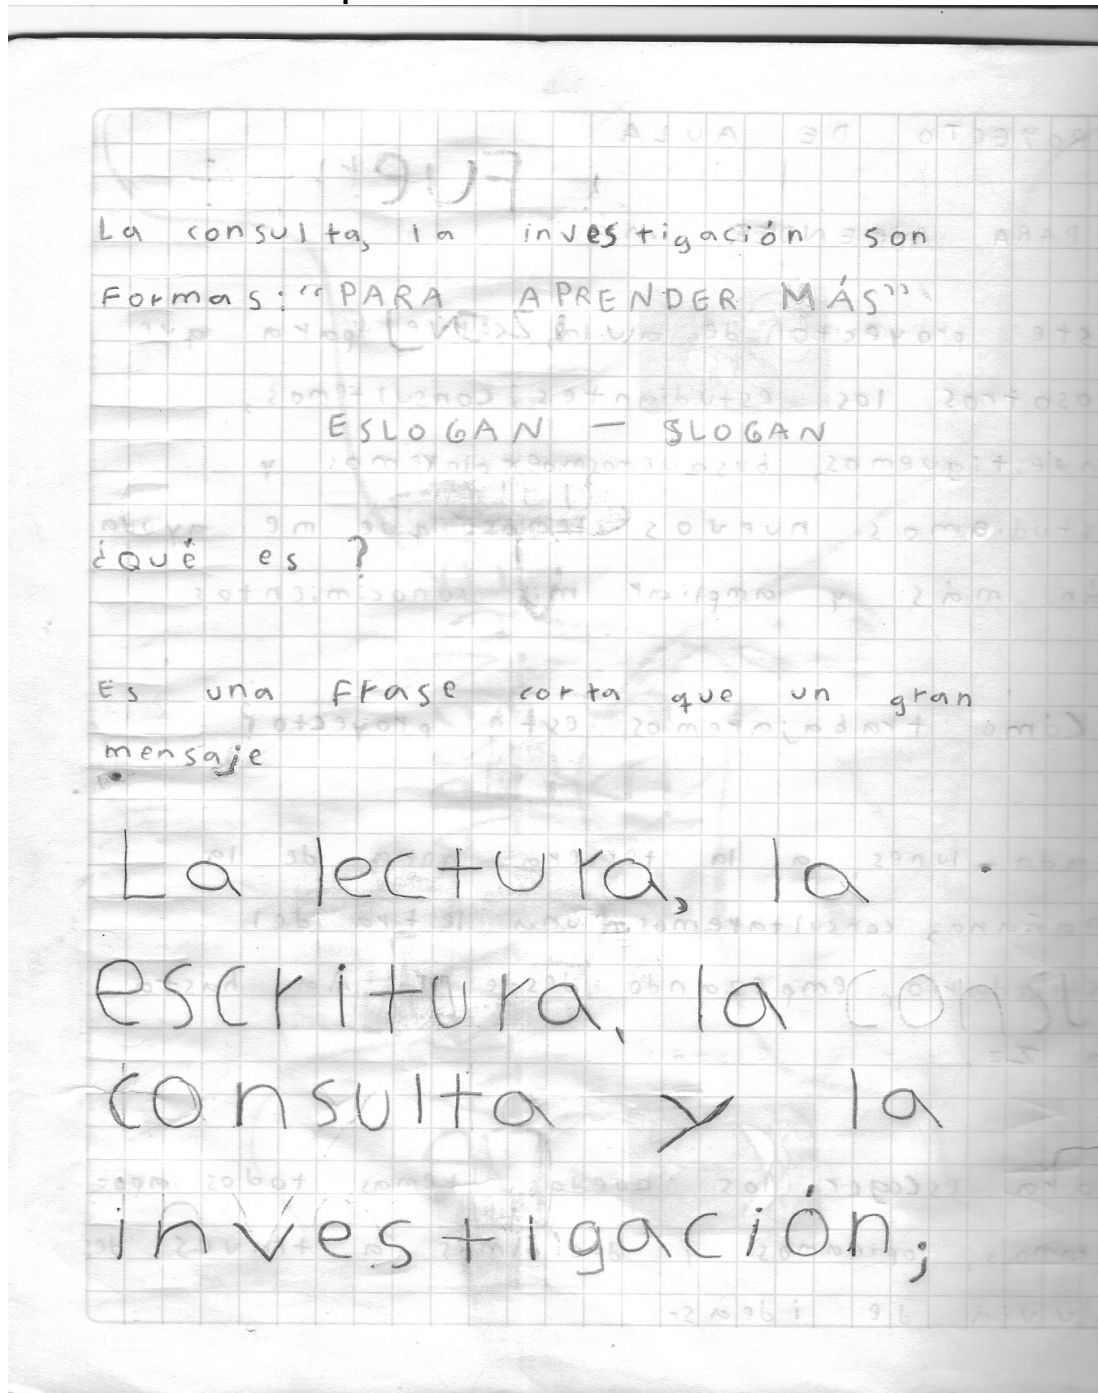 La consulta, la investigación son
Formas: "PARA APRENDER MÁS"
ESLOGAN — SLOGAN
¿Qué es?
Es una Frase corta que un gran
mensaje
La lectura, la
escritura, la
consulta y la
investigación;